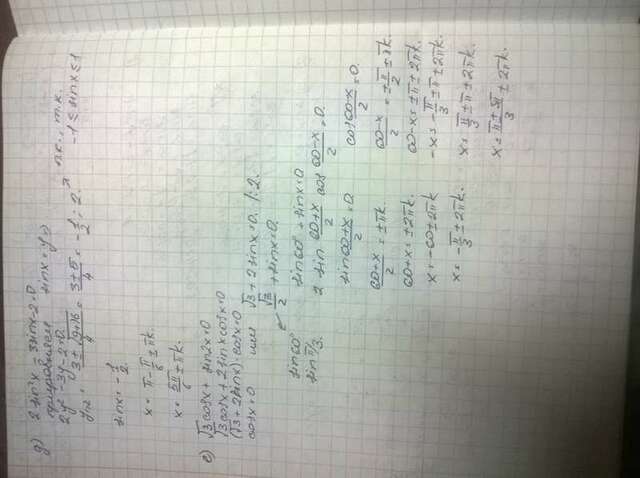 д) 2 sin²x - 3 sinx - 2 = 0
приравняем sinx = y ⇒
2y² - 3y - 2 = 0
y₁,₂ = (3 ± √(9+16))/4 = (3 ± 5)/4 = -1/2 ; 2. п.к., т.к. -1 ≤ sinx ≤ 1
sinx = -1/2
x = π - π/6 ± πk.
x = 5π/6 ± πk.
е) √3 cosx + sin2x = 0
√3 cosx + 2 sinx cosx = 0
(√3 + 2 sinx) cosx = 0
cosx = 0 или √3 + 2 sinx = 0. /: 2.
√3/2 + sinx = 0.
sin60° sin60° + sinx = 0
sin π/3. 2 sin (60+x)/2 cos (60-x)/2 = 0.
sin (60+x)/2 = 0 cos (60-x)/2 = 0.
(60+x)/2 = ±πk. (60-x)/2 = ±π/2 ± πk.
60+x = ±2πk. 60-x = ±π ± 2πk.
x = -60 ± 2πk -x = -π/3 ± π ± 2πk.
x = -π/3 ± 2πk. x = π/3 ± π ± 2πk.